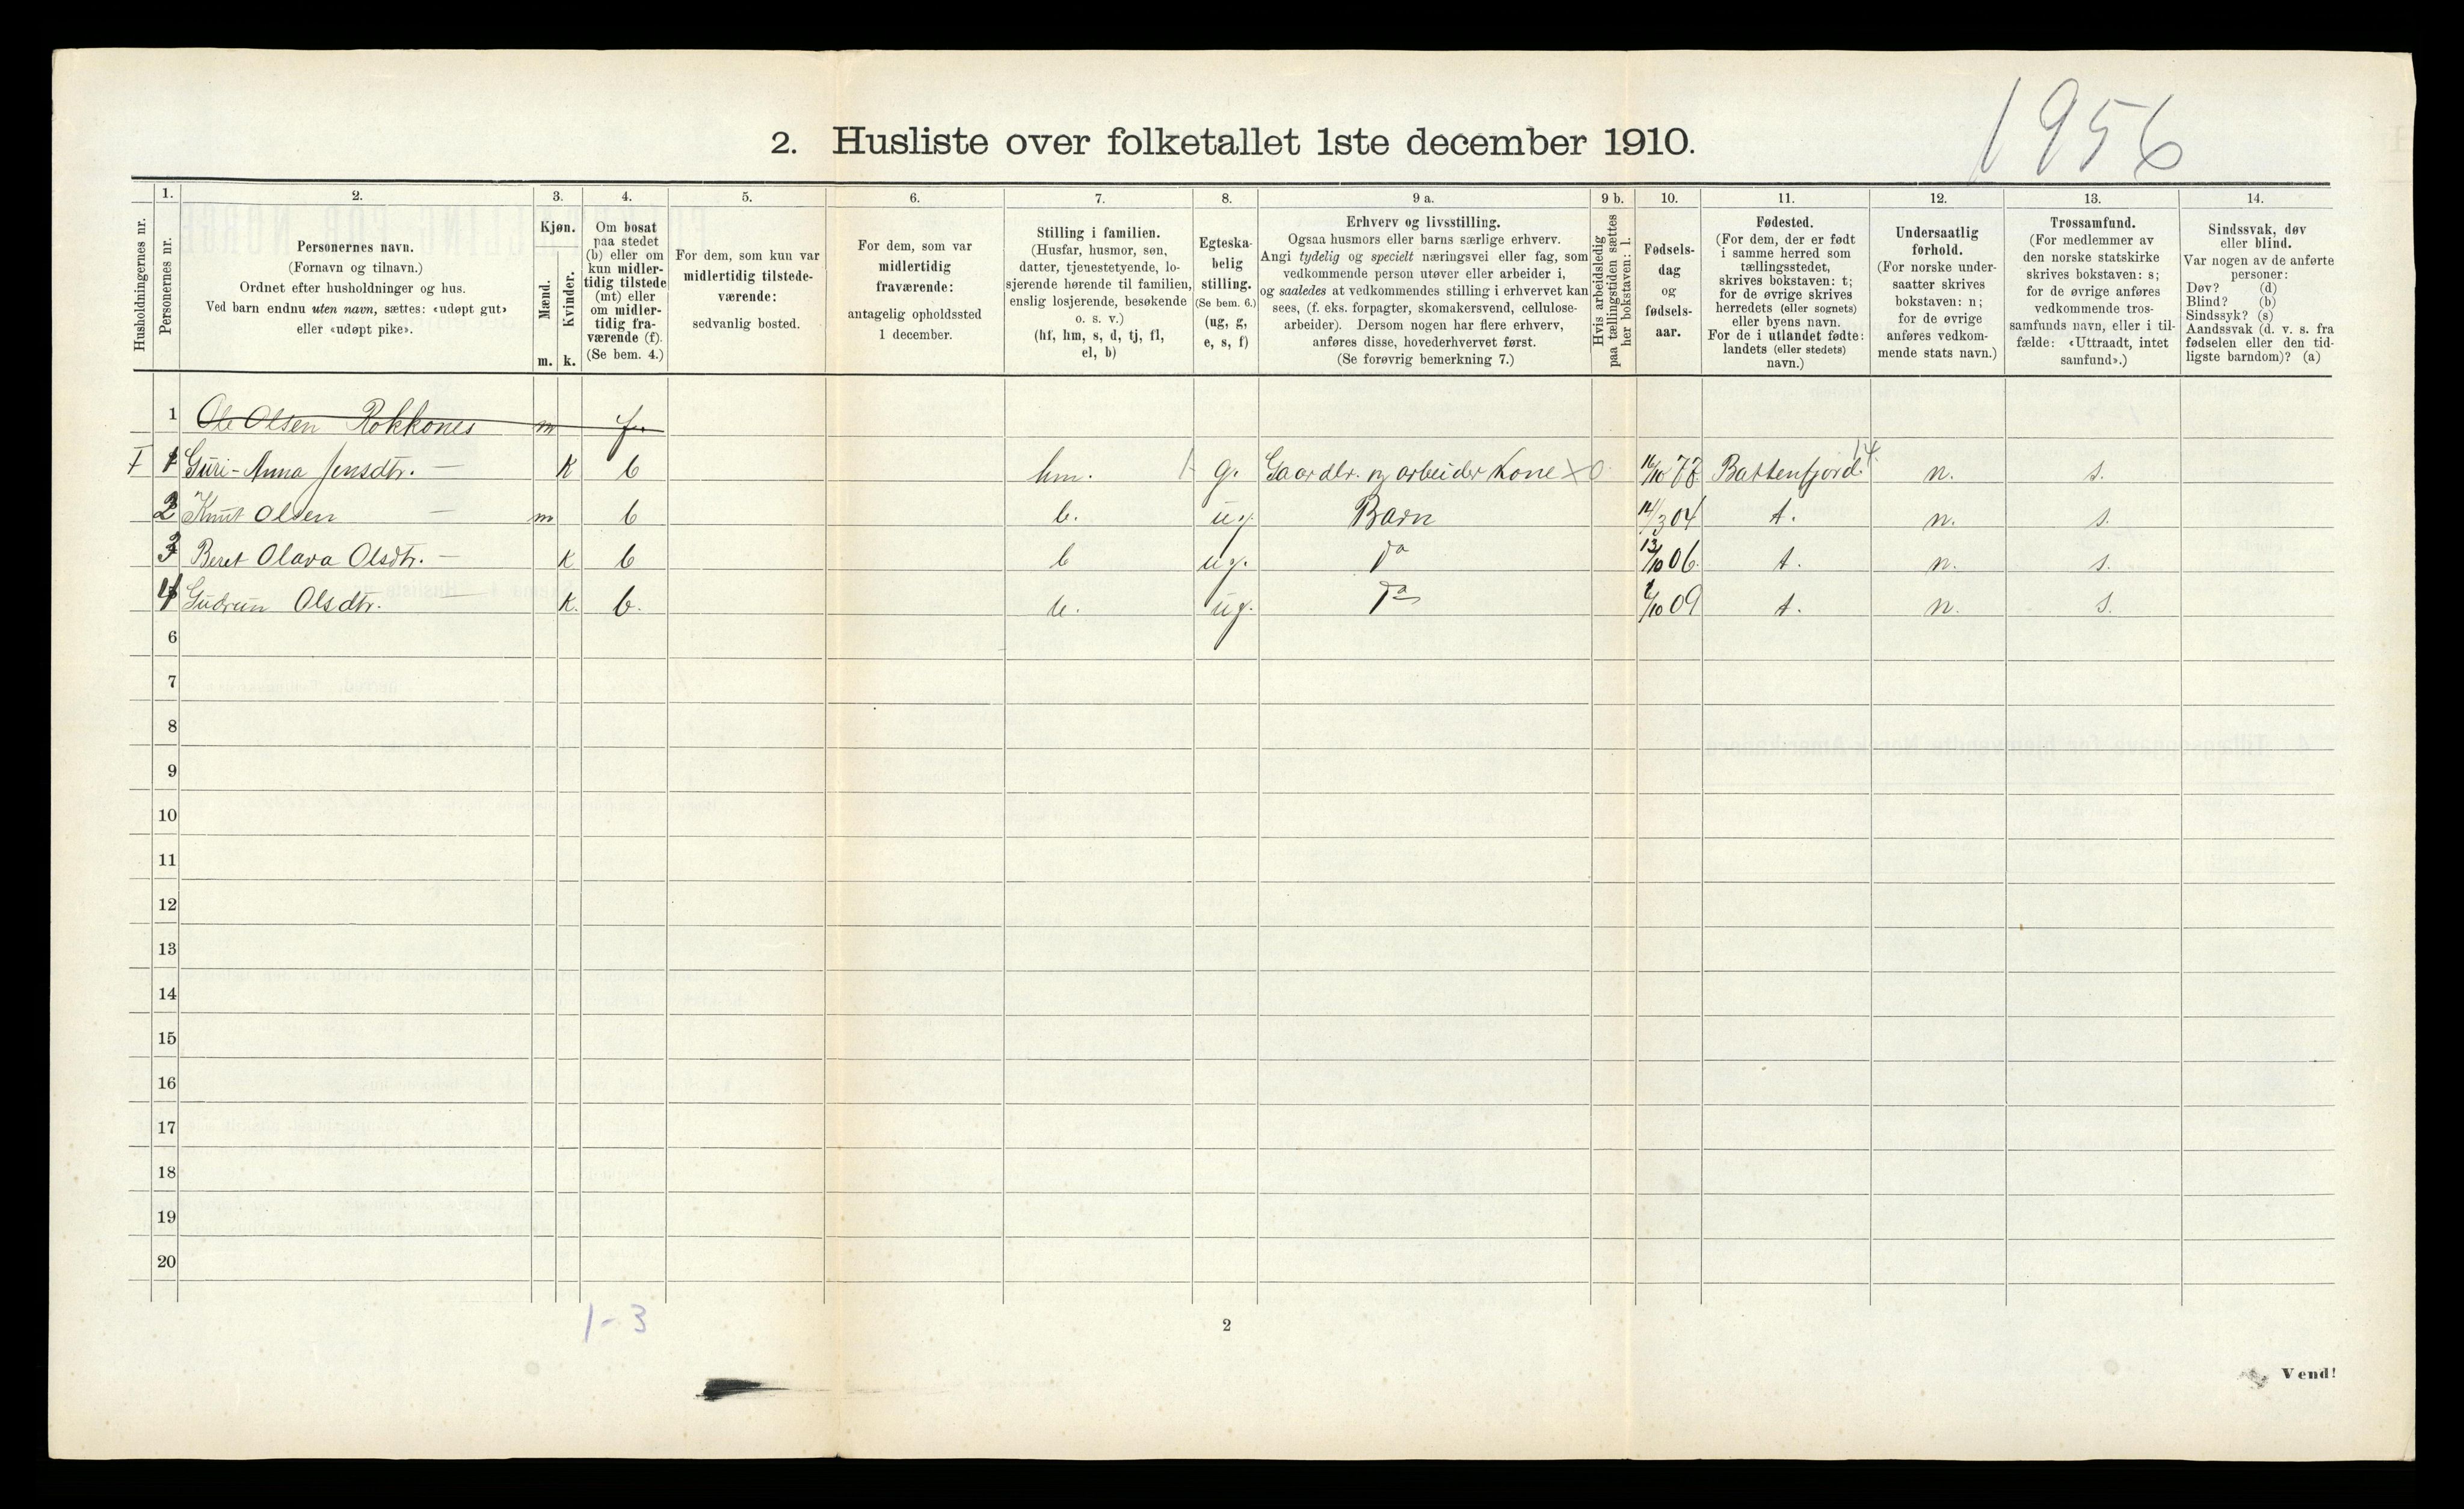 1956
2. Husliste over folketallet 1ste december 1910.
Husholdningernes nr.
1. Personernes nr.
2. Personernes navn. (Fornavn og tilnavn.) Ordnet efter husholdninger og hus. Ved barn endnu uten navn, sættes: «udøpt gut» eller «udøpt pike».
3. Kjøn. Mænd. m. Kvinder. k.
4. Om bosat paa stedet (b) eller om kun midlertidig tilstede (mt) eller om midlertidig fraværende (f). (Se bem. 4.)
5. For dem, som kun var midlertidig tilstedeværende: sedvanlig bosted.
6. For dem, som var midlertidig fraværende: antagelig opholdssted 1 december.
7. Stilling i familien. (Husfar, husmor, søn, datter, tjenestetyende, losjerende hørende til familien, enslig losjerende, besøkende o. s. v.) (hf, hm, s, d, tj, fl, el, b)
8. Egteskabelig stilling. (Se bem. 6.) (ug, g, e, s, f)
9 a. Erhverv og livsstilling. Ogsaa husmors eller barns særlige erhverv. Angi tydelig og specielt næringsvei eller fag, som vedkommende person utøver eller arbeider i, og saaledes at vedkommendes stilling i erhvervet kan sees, (f. eks. forpagter, skomakersvend, cellulosearbeider). Dersom nogen har flere erhverv, anføres disse, hovederhvervet først. (Se forøvrig bemerkning 7.)
9 b. Hvis arbeidsledig paa tællingstiden sættes her bokstaven: l.
10. Fødselsdag og fødselsaar.
11. Fødested. (For dem, der er født i samme herred som tællingsstedet, skrives bokstaven: t; for de øvrige skrives herredets (eller sognets) eller byens navn. For de i utlandet fødte: landets (eller stedets) navn.)
12. Undersaatlig forhold. (For norske undersaatter skrives bokstaven: n; for de øvrige anføres vedkommende stats navn.)
13. Trossamfund. (For medlemmer av den norske statskirke skrives bokstaven: s; for de øvrige anføres vedkommende trossamfunds navn, eller i tilfælde: «Uttraadt, intet samfund».)
14. Sindssvak, døv eller blind. Var nogen av de anførte personer: Døv? (d) Blind? (b) Sindssyk? (s) Aandssvak (d. v. s. fra fødselen eller den tidligste barndom)? (a)
1 Ole Olsen Rokkones m f
I 1 Guri-Anna Jensdtr. — K b hm. g. Gaardbr. og arbeider Kone X 0 16/10 77 Battenfjord. 14 n. s.
2 Knut Olsen — m b b. ug. Barn 14/3 04 t. n. s.
3 Beret Olava Olsdtr. — K b b ug. Do 13/10 06. t. n. s.
4 Gudrun Olsdtr. — K. b. b. ug. Do /10 09 t. n. s.
6
7
8
9
10
11
12
13
14
15
16
17
18
19
20
1-3
2
Vend!